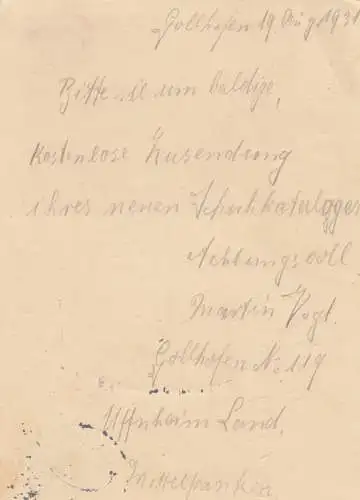 Gollhofen 19. Aug. 1931
Bitte um baldige,
kostenlose Zusendung
ihres neuen Schuhkatalogges
Achtungsvoll
Martin Vogt.
Gollhofen No. 119
Uffenheim Land.
Mittelfranken